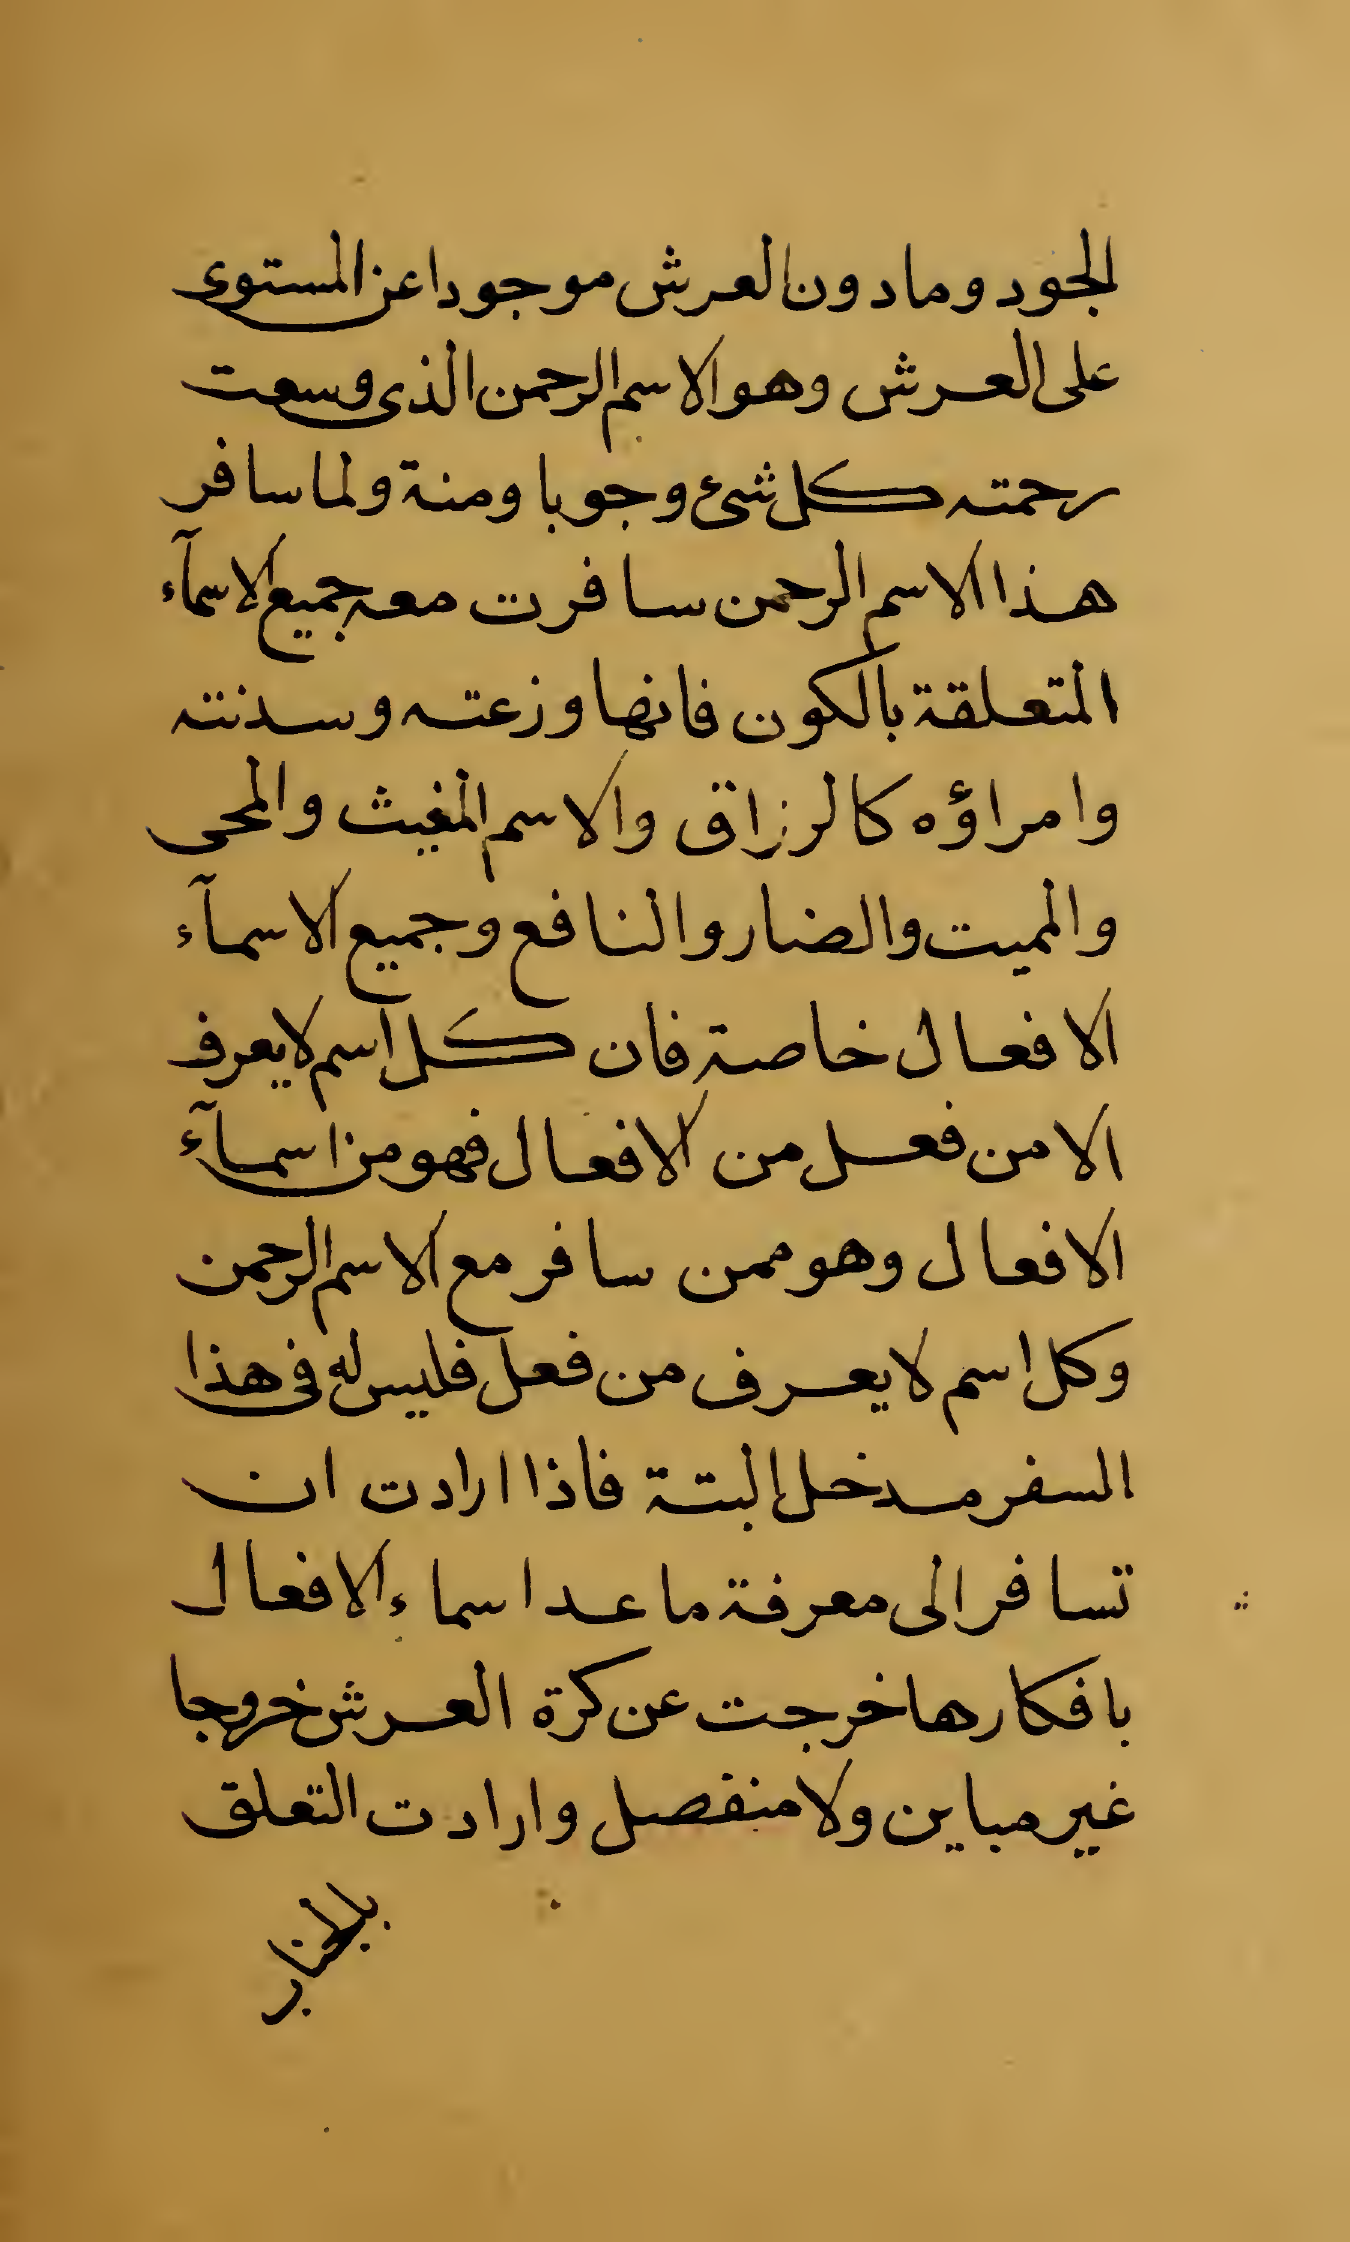 الجود وما دون العرش موجودا عن المستوى
على العرش وهو الاسم الرحمن الذى وسعت
رحمته كل شئ وجوبا ومنة ولما سافر
هذا الاسم الرحمن سافرت معه جميع الاسمآء
المتعلقة بالكون فانها وزعته وسدنته
وامراؤه كالرزاق والاسم المغيث والمحى
والمميت والضار والنافع وجميع الاسمآء
الافعال خاصة فان كل اسم لا يعرف
الا من فعل من الافعال فهو من اسمآء
الافعال وهو ممن سافر مع الاسم الرحمن
وكل اسم لا يعرف من فعل فليس له فى هذا
السفر مدخل البتة فاذا ارادت ان
تسافر الى معرفة ما عدا اسماء الافعال
بافكارها خرجت عن كرة العرش خروجا
غير مباين ولا منفصل وارادت التعلق